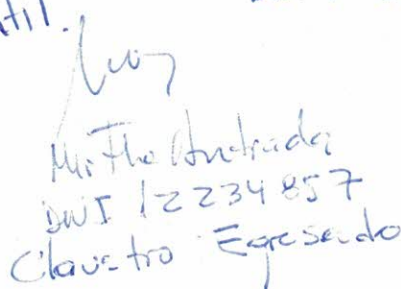 Mirtha Andrada
DNI 12234857
Claustro Egresado